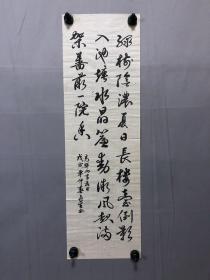 绿樹陰濃夏日長樓臺倒影
入池塘水晶簾動微風起满
架薔薇一院香
高駢山亭夏日
戊戌年仲夏